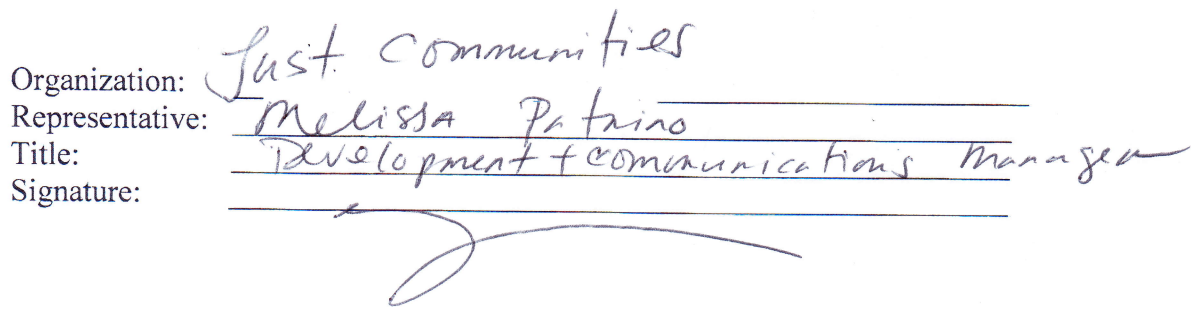 Organization: Just Communities
Representative: Melissa Patrino
Title: Development + Communications Manager
Signature: